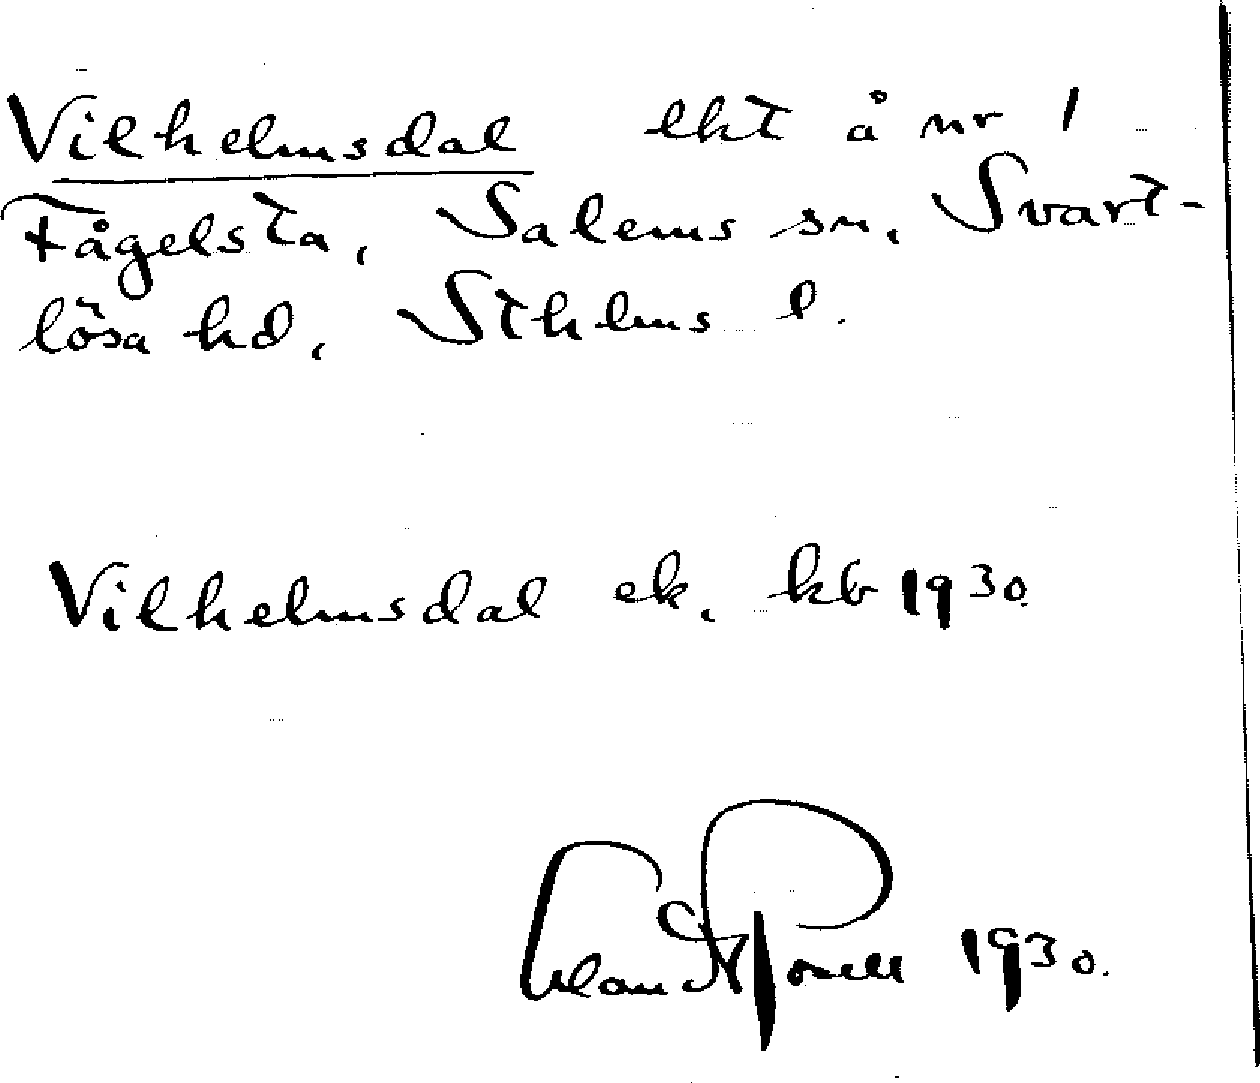 Vilhelmsdal lht å nr 1
Fågelsta, Salems sn, Svart-
lösa hd, Sthlms l.
Vilhelmsdal ek. kb 1930.
1930.